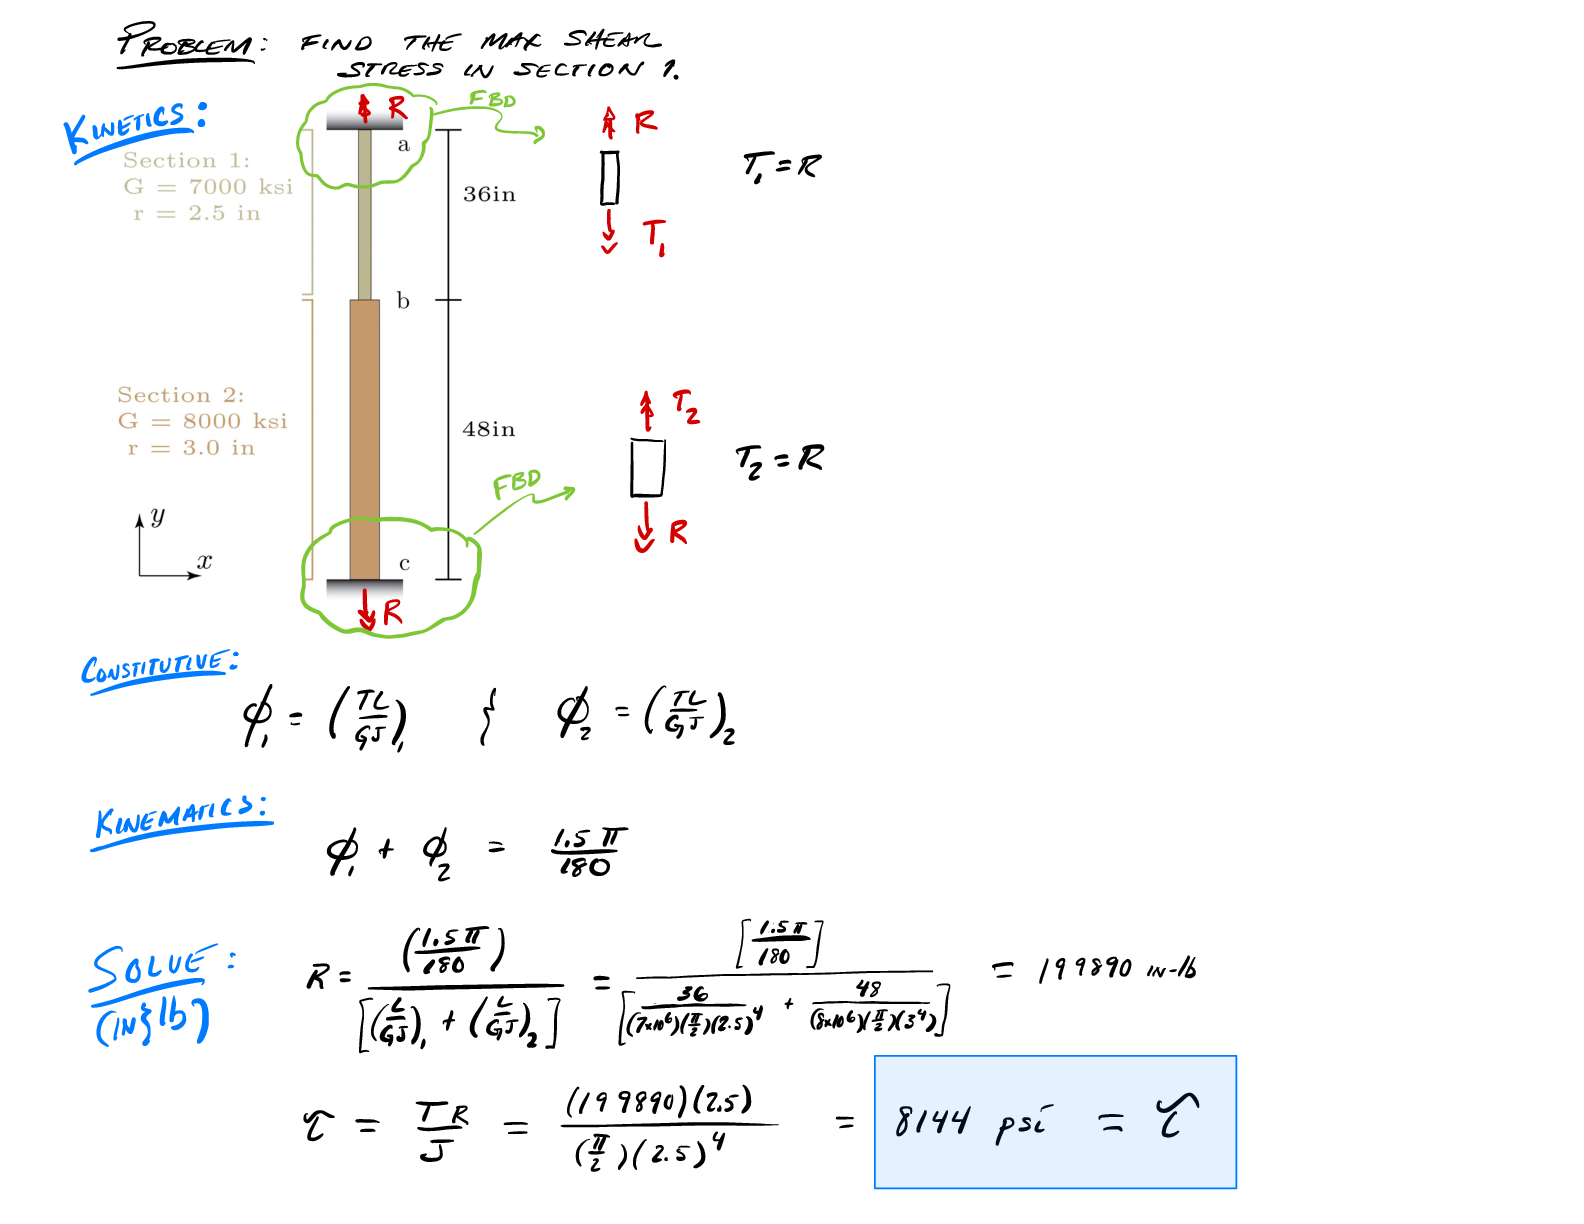 PROBLEM: FIND THE MAX SHEAR
STRESS IN SECTION 1.
KINETICS:
R
FBD
R
a
T₁ = R
Section 1:
G = 7000 ksi
r = 2.5 in
36in
T₁
b
Section 2:
G = 8000 ksi
r = 3.0 in
48in
T₂
T₂ = R
FBD
R
y
x
c
R
CONSTITUTIVE:
ϕ₁ = (TL/GJ)₁ } ϕ₂ = (TL/GJ)₂
KINEMATICS:
ϕ₁ + ϕ₂ = 1.5 π/180
SOLVE:
(IN } lb)
R = (1.5 π/180)/[(L/GJ)₁ + (L/GJ)₂] = [1.5 π/180]/[36/(7x10⁶)(π/2)(2.5)⁴ + 48/(8x10⁶)(π/2)(3⁴)] = 199890 IN-lb
τ = TR/J = (199890)(2.5)/(π/2)(2.5)⁴ = 8144 psi = τ